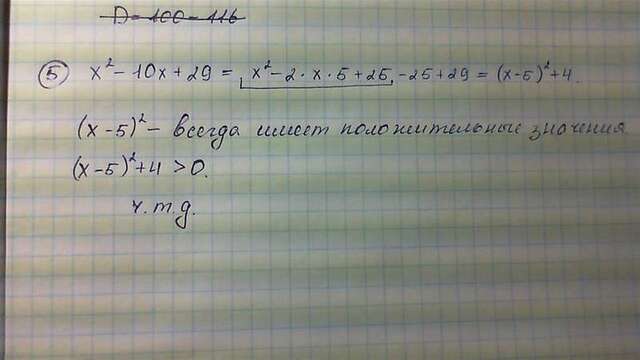 D = 100 - 116
⑤ x² - 10x + 29 = x² - 2 · x · 5 + 25 - 25 + 29 = (x-5)² + 4.
(x-5)² - всегда имеет положительные значения
(x-5)² + 4 > 0.
ч.т.д.